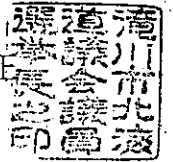 滝川市北海
道議会議員
選挙長之印